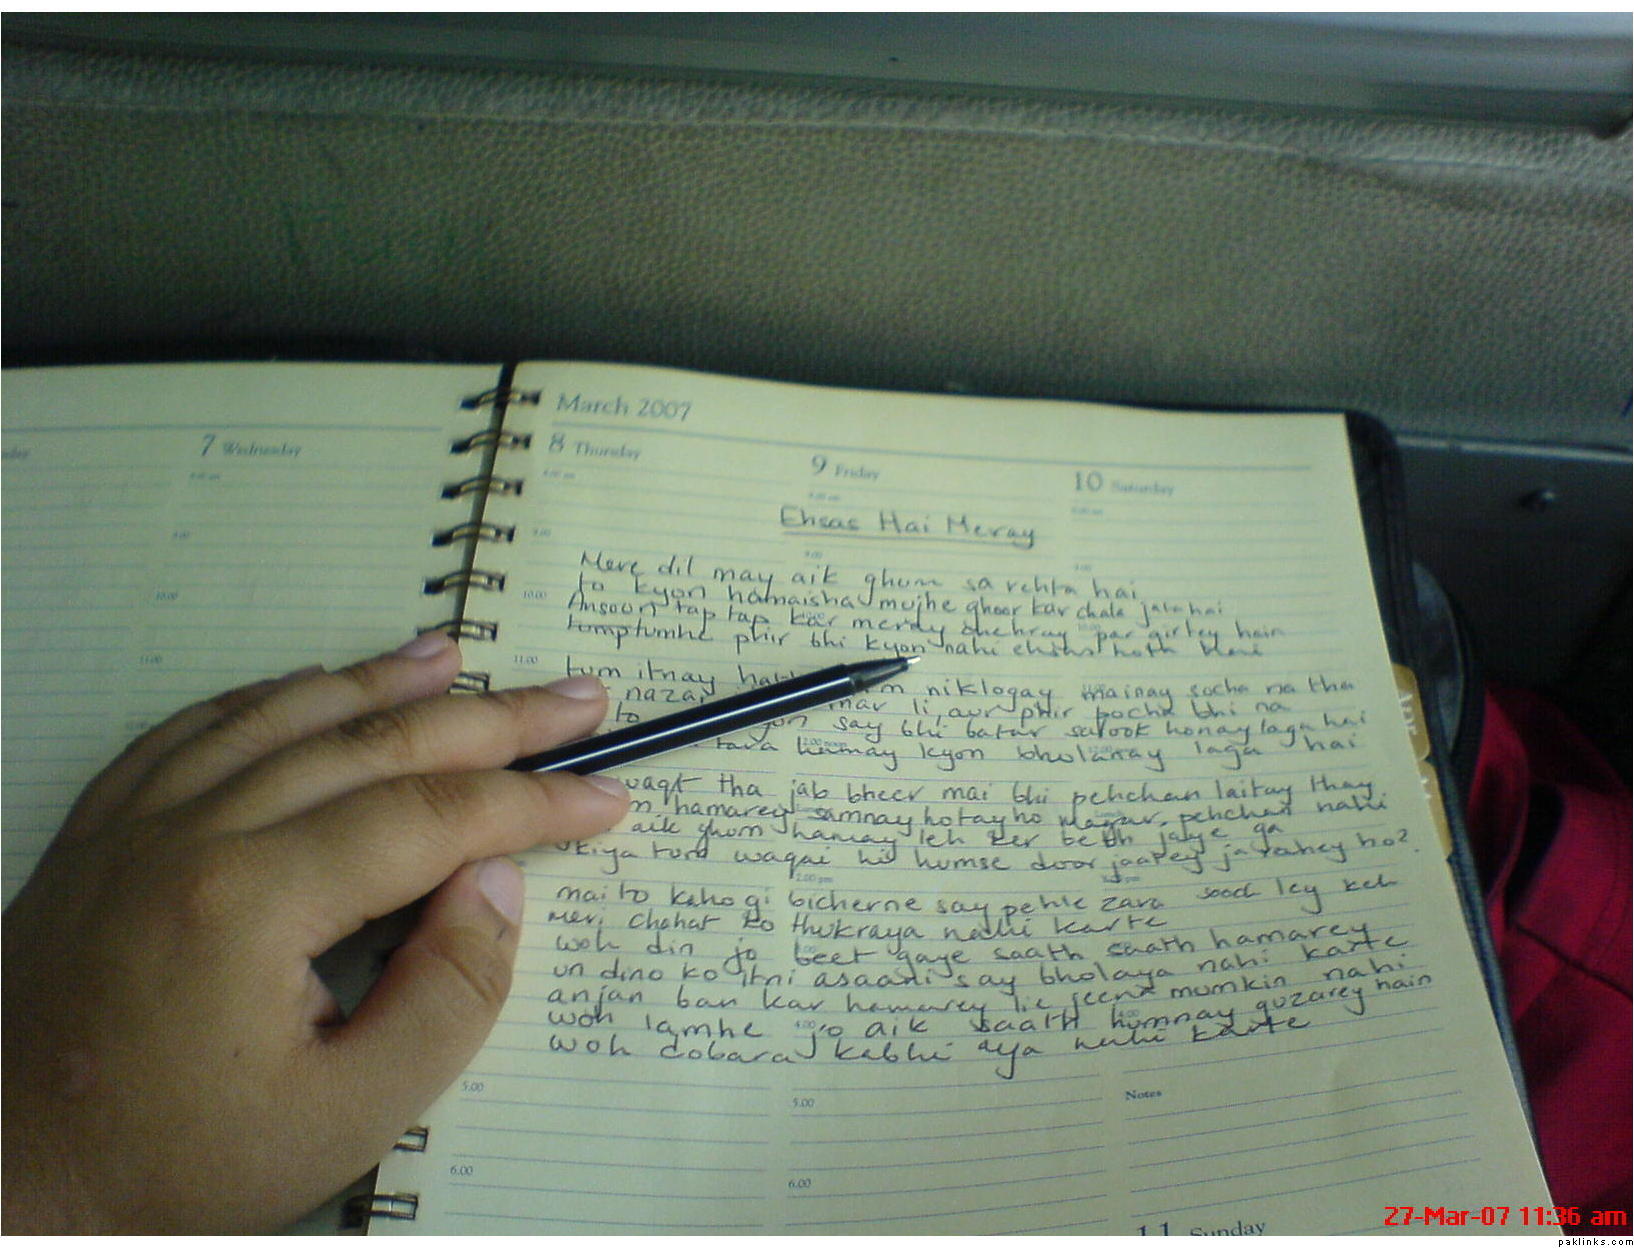 March 2007
7 Wednesday
8 Thursday
9 Friday
10 Saturday
Ehsas Hai Meray
Mere dil may aik ghum sa rehta hai
to kyon hamaisha mujhe ghoor kar chala jata hai
Ansoon tap tap kar meray chehray par girtey hain
phir bhi kyon nahi
tum itnay niklogay mainay socha na tha
nazar li, aur phir pocha bhi na
to say bhi batar salook honay laga hai
hamay kyon bholanay laga hai
waqt tha jab bheer mai bhi pehchan laitay thay
hamarey samnay hotay ho magar pehchan nahi
aik ghum hamay leh ker beth jaiye ga
kiya tum waqai hi humse door jaatey ja rahey ho?
mai to kaho gi bicherne say pehle zara soch ley keh
Meri chahat ko thukraya nahi karte
woh din jo beet gaye saath saath hamarey
un dino ko itni asaani say bholaya nahi karte
anjan ban kar hamarey lie jeena mumkin nahi
woh lamhe jo aik saath humnay guzarey hain
woh dobara kabhi aya nahi karte
9.00
10.00
11.00
2.00 pm
5.00
5.00
Notes
6.00
6.00
11 Sunday
27-Mar-07 11:36 am
paklinks.com